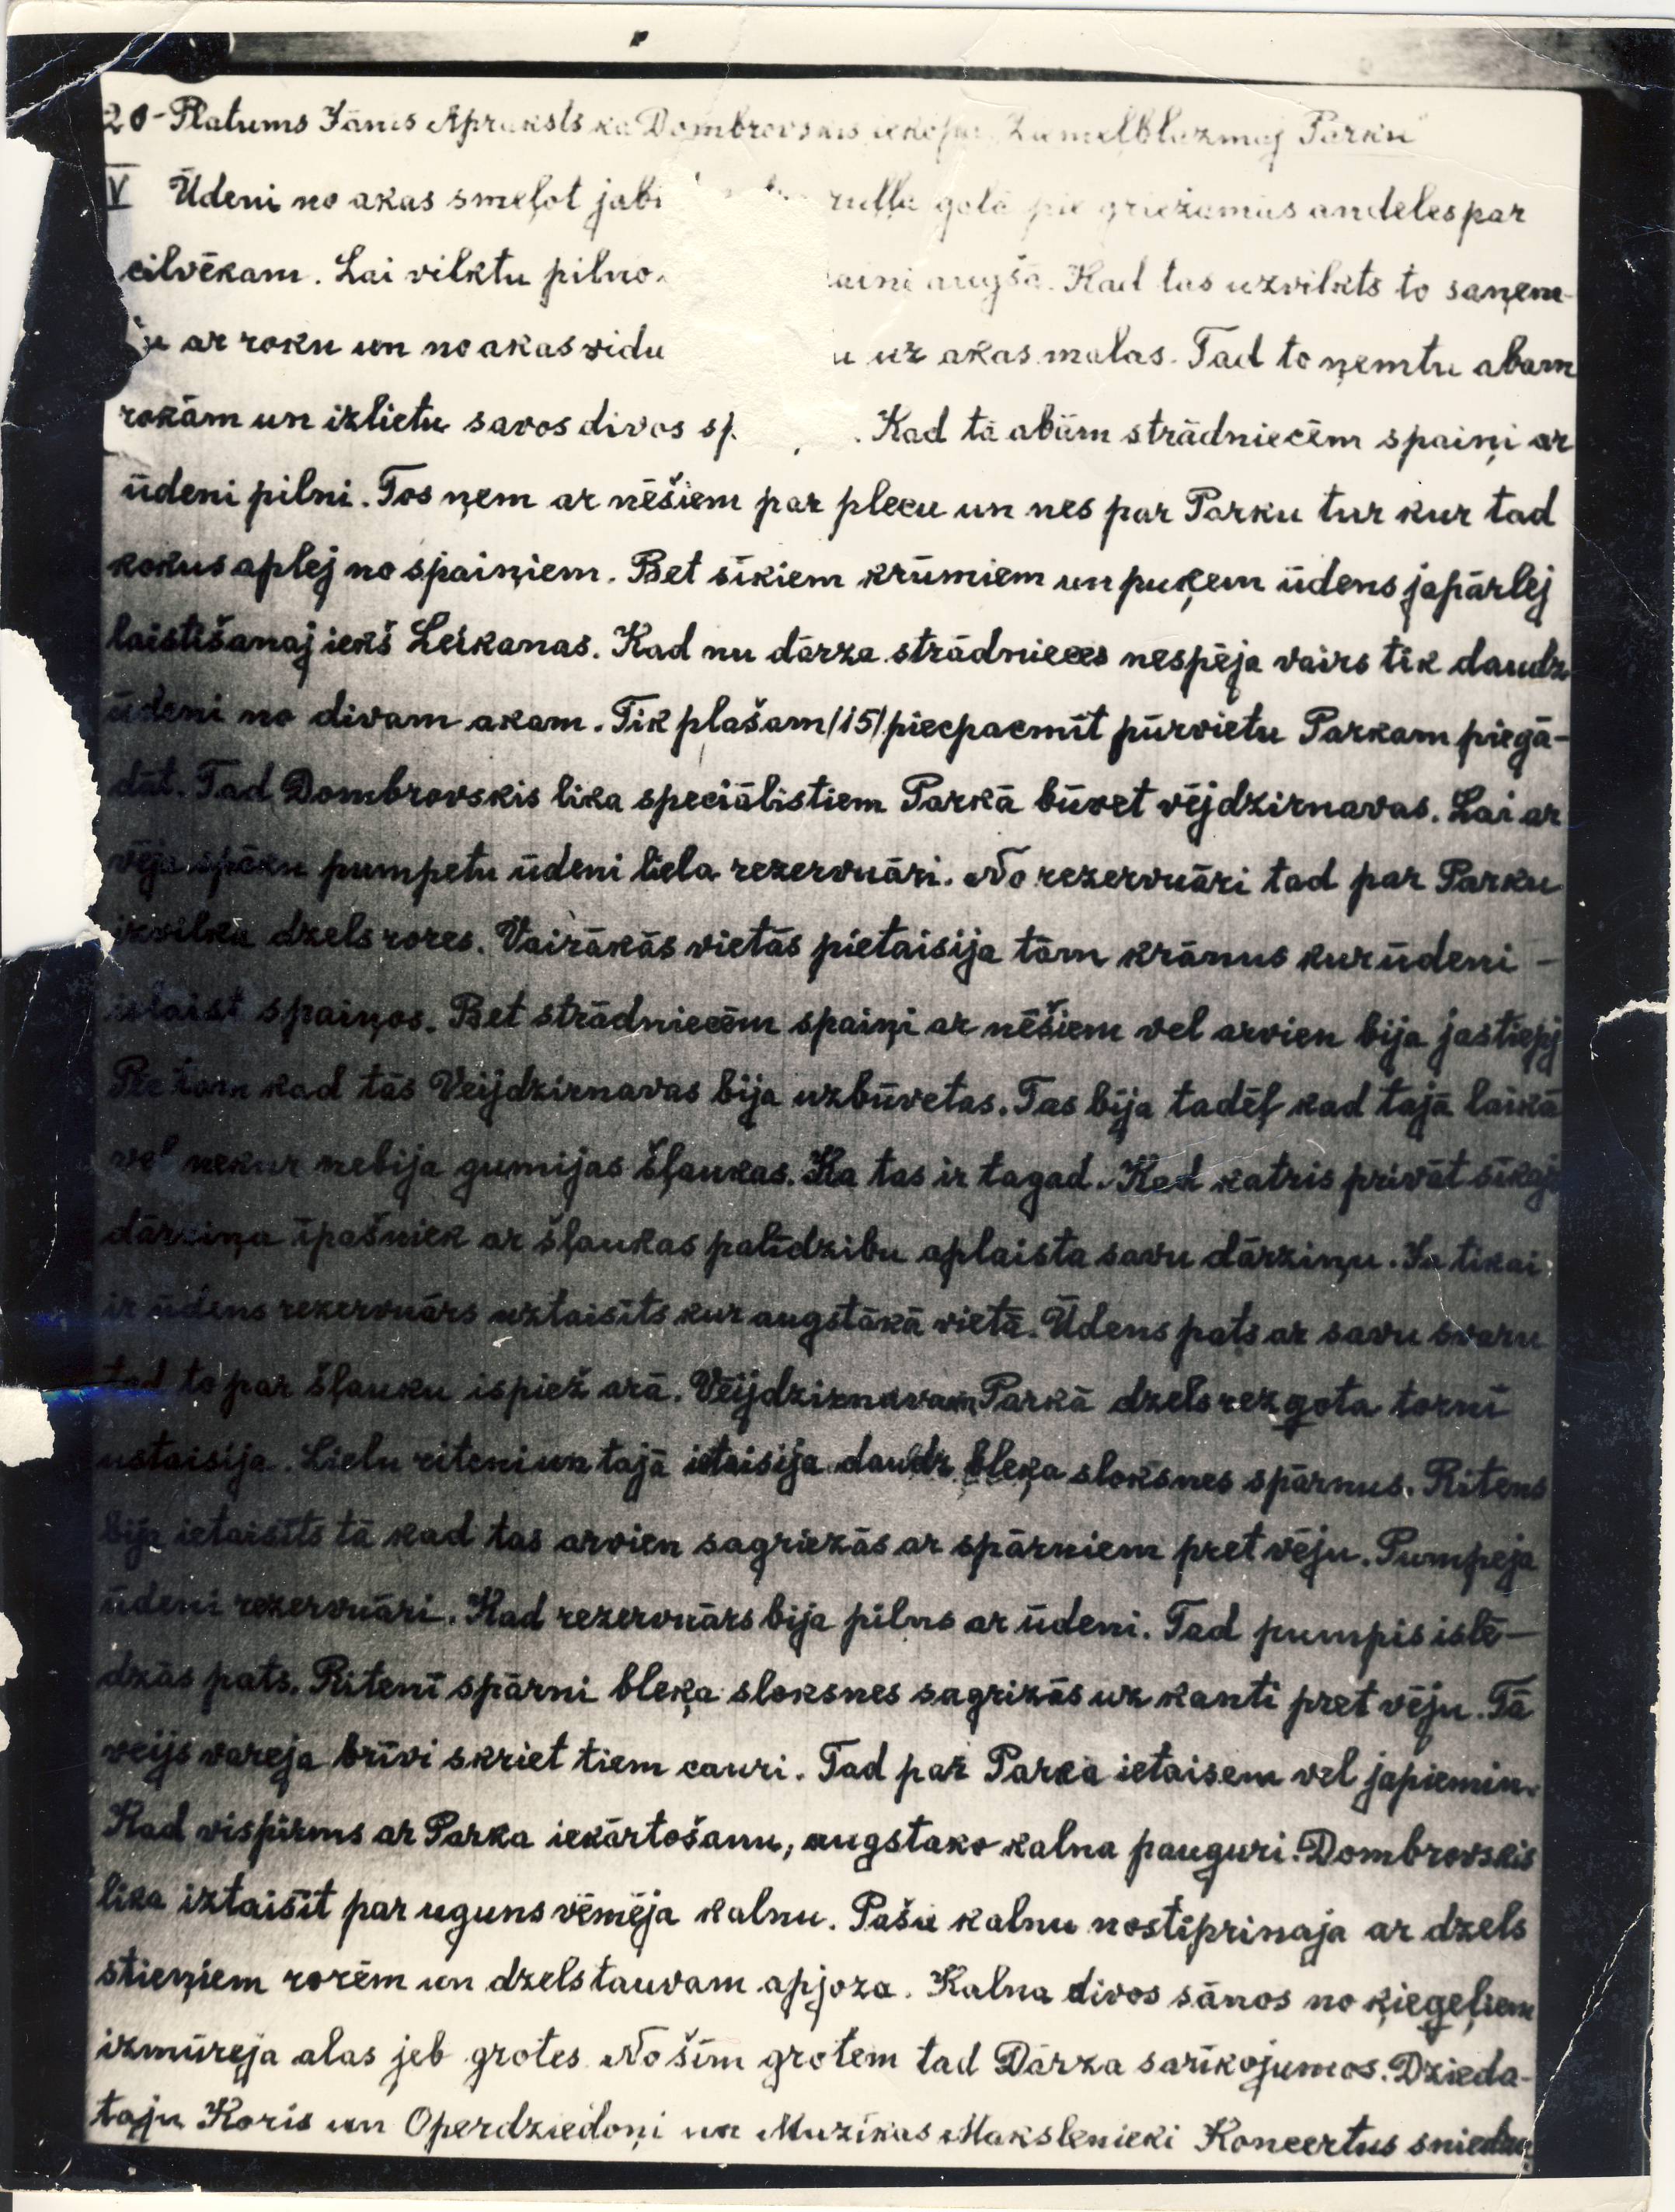 20- Platums Jānis Apraksts ka Dombrovskis Parku
V Ūdeni no akas smeļot jabi ruļļa galā pie griežamās andeles par
cilvēkam. Lai vilktu pilno aini augšā. Kad tas uzvilkts to saņem-
ar roku un no akas vidu uz akas malas. Tad to ņemtu abam
rokām un izlietu savos divos sp . Kad tā abām strādniecēm spaiņi ar
ūdeni pilni. Tos ņem ar nēšiem par plecu un nes par Parku tur kur tad
kokus aplej no spaiņiem. Bet sīkiem krūmiem un puķem ūdens japārlej
laistīšanaj iekš Leikanas. Kad nu dārza strādnieces nespēja vairs tik daudz
ūdeni no divam akam. Tik plašam /15/ piecpacmīt pūrvietu Parkam piegā-
dāt. Tad Dombrovskis lika speciālistiem Parkā būvet vējdzirnavas. Lai ar
vēja spēku pumpetu ūdeni liela rezervuāri. No rezervuāri tad par Parku
izvilka dzels rores. Vairākās vietās pietaisija tām krānus kur ūdeni -
islaist spaiņos. Bet strādniecēm spaiņi ar nēšiem vel arvien bija jastiepj
Pie tam kad tās Veijdzirnavas bija uzbūvetas. Tas bija tadēļ kad tajā laikā
vel nekur nebija gumijas šļaukas. Ka tas ir tagad. Kad katris privāt sīkaj
dārziņa īpašniek ar šļaukas palīdzibu aplaista savu dārziņu. Ja tikai
ir ūdens rezervuārs uztaisīts kur augstākā vietā. Ūdens pats ar savu svaru
tad to par šļauku ispiež arā. Vēijdzirnavam Parkā dzels rezgota torni
ustaisija. Lielu riteni un tajā ietaisija daudz bleķa sloksnes spārnus. Ritens
bija ietaisīts tā kad tas arvien sagriezās ar spārniem pret vēju. Pumpeja
ūdeni rezervuāri. Kad rezervuārs bija pilns ar ūdeni. Tad pumpis islē-
dzās pats. Ritenī spārni bleķa sloksnes sagrizās uz kanti pret vēju. Tā
veijs vareja brīvi skriet tiem cauri. Tad par Parka ietaisem vel japiemin.
Kad vispirms ar Parka iekārtošanu, augstako kalna pauguri. Dombrovskis
lika iztaisīt par uguns vēmēja kalnu. Pašu kalnu nostiprinaja ar dzels
stieņiem rorēm un dzelstauvam apjoza. Kalna divos sānos no ķieģeļiem
izmūreja alas jeb grotes. No šīm grotem tad Dārza sarīkojumos. Dzieda-
taju Koris un Operdziedoņi un Muzikas Makslenieki Koncertus sniedza